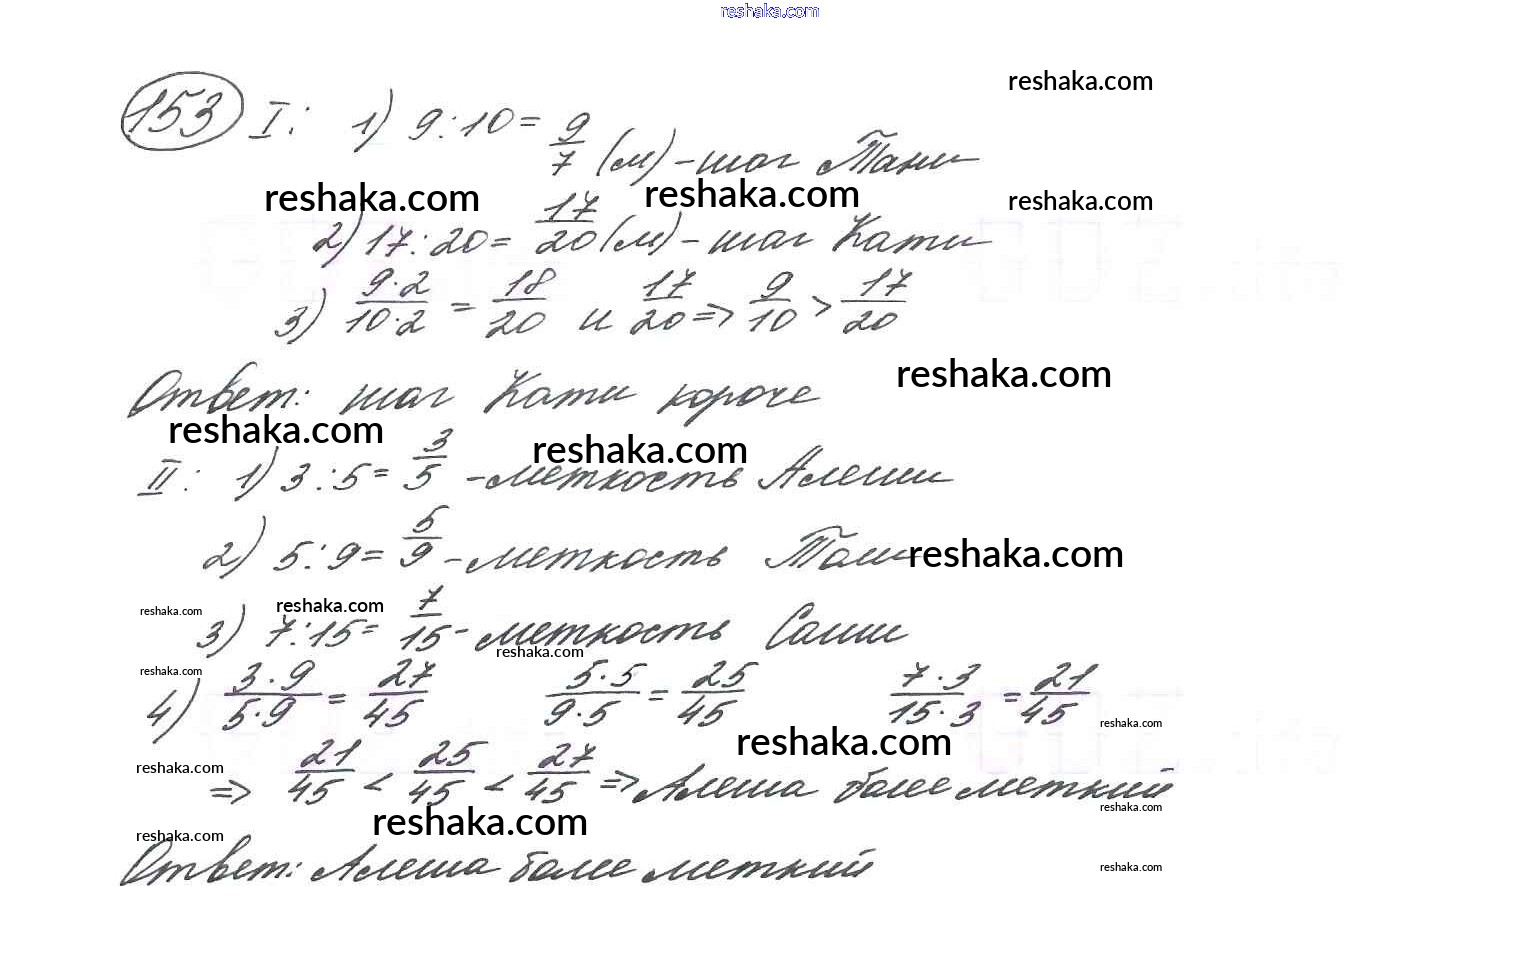 reshaka.com
reshaka.com
153 I: 1) 9:10= 9/7 (м) - шаг Тани
reshaka.com reshaka.com reshaka.com
2) 17:20= 17/20 (м) - шаг Кати
3) 9·2/10·2 = 18/20 и 17/20 => 9/10 > 17/20
reshaka.com
Ответ: шаг Кати короче
reshaka.com reshaka.com
II: 1) 3:5= 3/5 - меткость Алеши
2) 5:9= 5/9 - меткость
reshaka.com
reshaka.com reshaka.com
3) 7:15= 7/15 - меткость Саши
reshaka.com
reshaka.com
4) 3·9/5·9 = 27/45 5·5/9·5 = 25/45 7·3/15·3 = 21/45
reshaka.com
reshaka.com
reshaka.com
=> 21/45 < 25/45 < 27/45 => Алеша более меткий
reshaka.com
reshaka.com
reshaka.com
Ответ: Алеша более меткий
reshaka.com